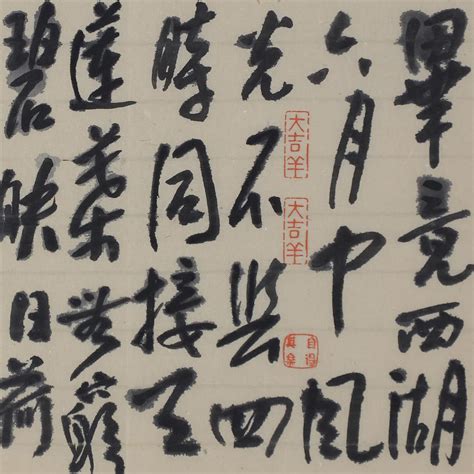 畢竟西湖
六月中風
光不與四
時同接天
蓮葉無窮
碧映日荷
大吉羊
大吉羊